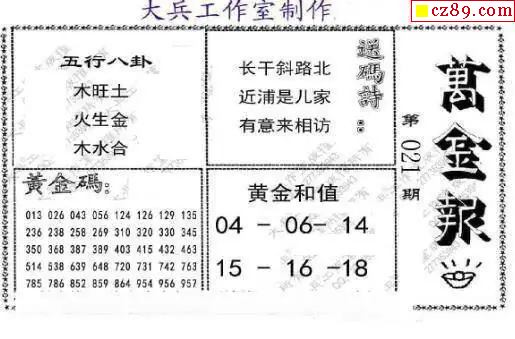 大兵工作室制作
cz89.com
五行八卦
木旺土
火生金
木水合
送碼詩：
长干斜路北
近浦是儿家
有意来相访
萬金报
第021期
黃金碼：
013 026 043 056 124 126 129 135
236 238 258 269 310 320 330 345
350 368 387 389 403 415 432 463
514 538 639 648 720 731 742 763
785 786 852 859 864 954 956 957
黄金和值
04 - 06- 14
15 - 16 -18